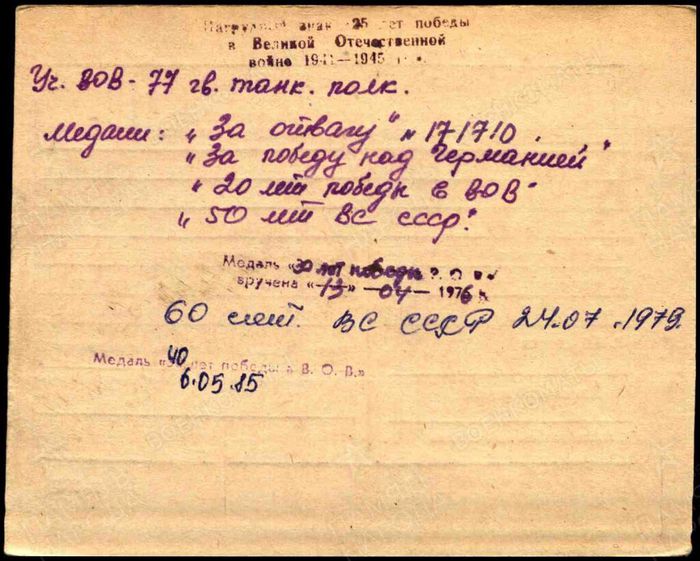 Нагрудный знак «25 лет победы
в Великой Отечественной
войне 1941—1945 г.г.
Уч. ВОВ - 77 гв. танк. полк.
Медали: „За отвагу" № 171710.
„За победу над Германией"
„20 лет победы в ВОВ"
„50 лет ВС СССР".
Медаль «30 лет победы В. О. В.»
вручена «13» 04 1976 г.
60 лет. ВС СССР 24.07.1979.
40
Медаль « лет победы в В. О. В.»
6.05.85